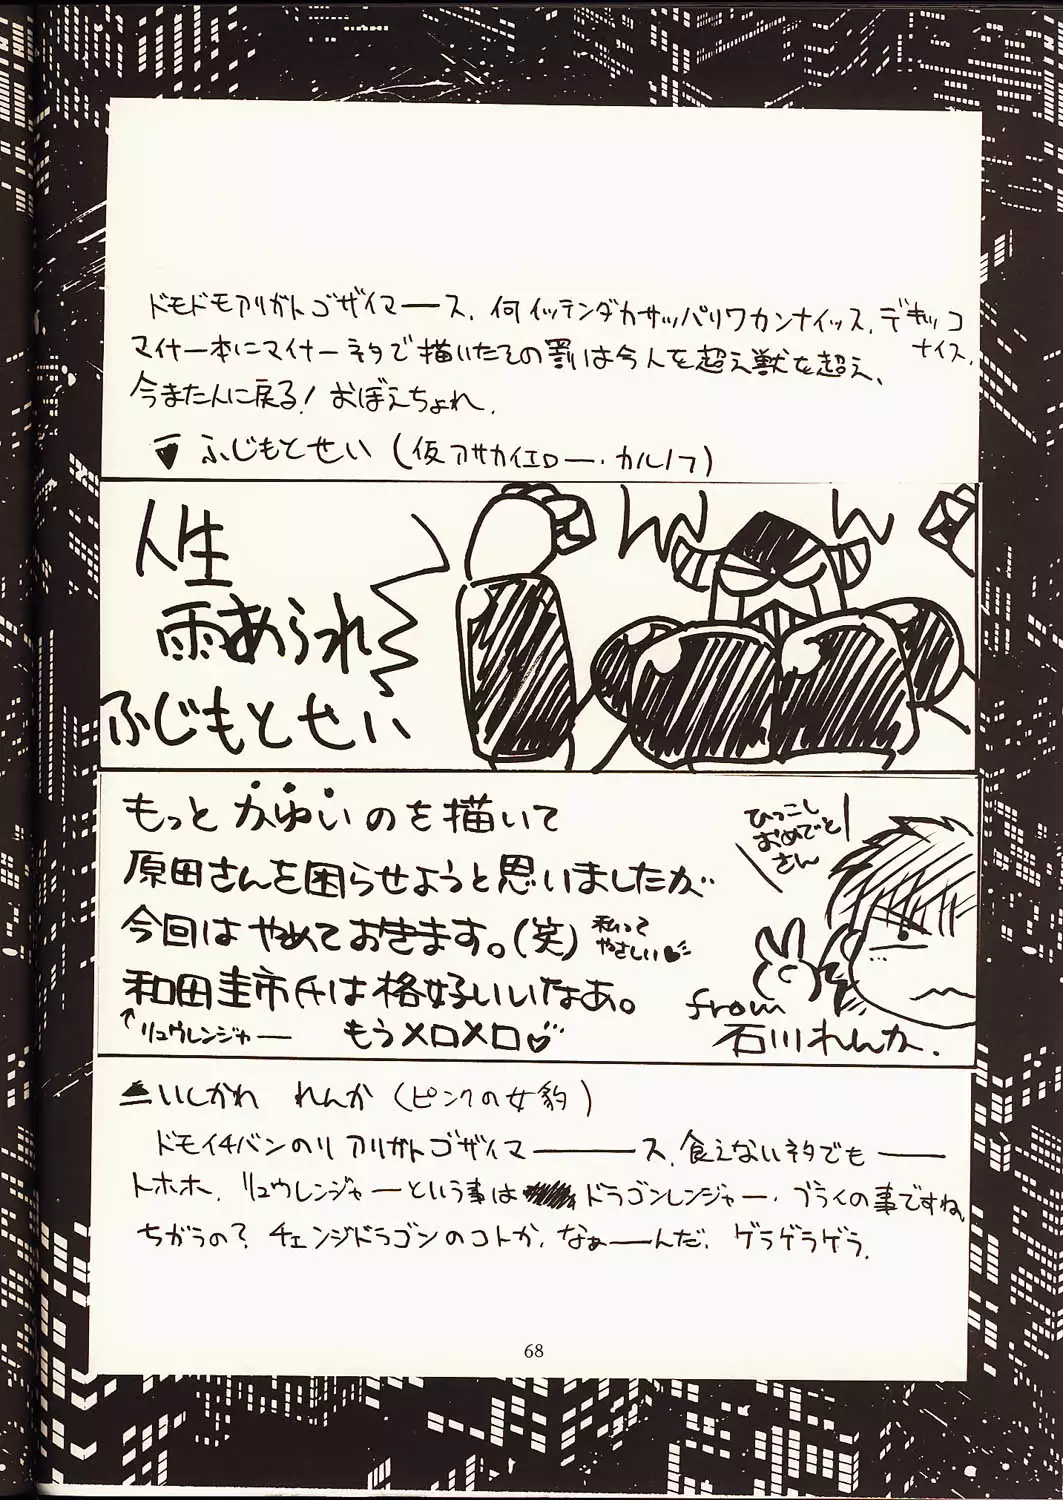 ドモドモアリガトゴザイマース。何イッテンダカサッパリワカンナイッス。デキッコナイス。
マイナー本にマイナーネタで描いたその罰は今人を超え獣を超え、
今また人に戻る！おぼえちょれ。
ふじもとせい（仮アサカイエロー・カルノフ）
人生
雨あられ
ふじもとせい
もっとかゆいのを描いて
原田さんを困らせようと思いましたが
今回はやめておきます。（笑）私ってやさしい♥
和田圭市氏は格好いいなあ。
↑リュウレンジャー もうメロメロ♡
ひっこし
おめでと
さん
from
石川れんか.
いしかわ れんか（ピンクの女豹）
ドモイチバンのリアリガトゴザイマーース。食えないネタでもーー
トホホ。リュウレンジャーという事はドラゴンレンジャー・ブライの事ですね。
ちがうの？チェンジドラゴンのコトか。なぁーーんだ。ゲラゲラゲラ。
68